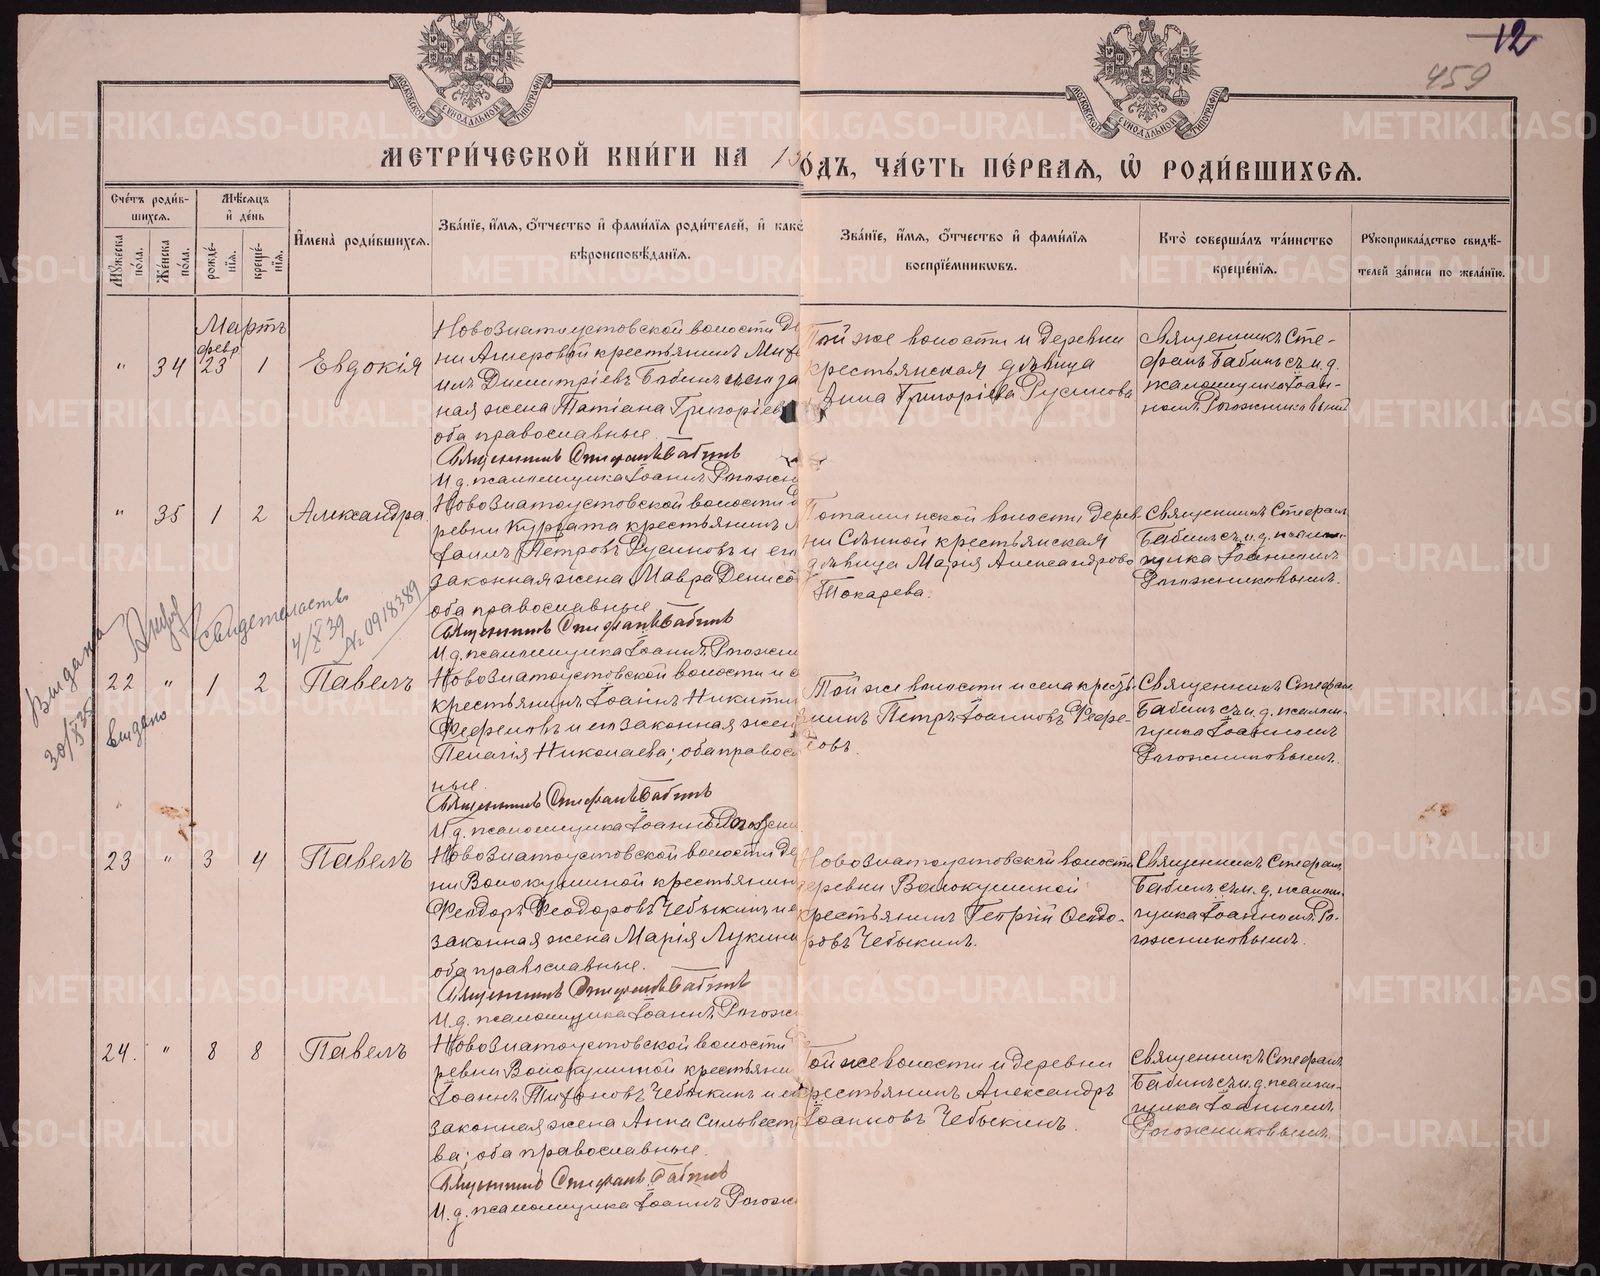 12
459
МОСКОВСКОЙ СѴНОДАЛЬНОЙ ТИПОГРАФІИ
МОСКОВСКОЙ СѴНОДАЛЬНОЙ ТИПОГРАФІИ
МЕТРИ́ЧЕСКОЙ КНИ́ГИ НА 19
ОДЪ, ЧА́СТЬ ПЕ́РВАЯ, Ѽ РОДИ́ВШИХСЯ.
Сче́тъ роди́в-
шихся.
Мꙋ́жеска по́ла.
Же́нска по́ла.
Мѣ́сяцъ и҆ де́нь
рожде́-
нїя.
креще́-
нїя.
И҆мена̀ роди́вшихся.
Зва́нїе, и҆́мя, ѻ҆́тчество и҆ фами́лїя роди́телей, и҆ како́
вѣроисповѣ́данїя.
Зва́нїе, и҆́мя, ѻ҆́тчество и҆ фами́лїя
воспрїе́мникѡвъ.
Кто̀ соверша́лъ та́инство
креще́нїя.
Рꙋкоприкла́дство свидѣ́-
телей за́писи по жела́нїю.
Мартъ
февр
" 34 23 1 Евдокія
Новозлатоустовской волости Де
ни Амеровой крестьянинъ Ми
Димитріевъ Бабинъ и его за
ная жена Татіана Григоріев
оба православные.
Священникъ Стефанъ Бабинъ
И. д. псаломщика Іоаннъ Рогожн
Той же волости и деревни
крестьянская дѣвица
Анна Григоріева Русинова
Священникъ Сте-
фанъ Бабинъ съ и. д.
псаломщика Іоан-
номъ Рогожниковымъ
" 35 1 2 Александра
Новозлатоустовской волости д
ревни Курбата крестьянинъ
Петровъ Русиновъ и его
законная жена Мавра Денисо
оба православные
Священникъ Стефанъ Бабинъ
И. д. псаломщика Іоаннъ Рогожни
Поташинской волости дерев
ни Сѣнной крестьянская
дѣвица Марія Александрова
Токарева.
Священникъ Стефанъ
Бабинъ съ и. д. псалом-
щика Іоанномъ
Рогожниковымъ.
Выдана
30/X 35
Свидетельство
4/X 39
№ 0918389
выдано
22 " 1 2 Павелъ
Новозлатоустовской волости и с
крестьянинъ Іоаннъ Никити
Фефеловъ и его законная жен
Пелагія Николаева; оба правосл
ные.
Священникъ Стефанъ Бабинъ
И. д. псаломщика Іоаннъ Рогожни
Той же волости и села кресть-
нинъ Петръ Іоанновъ Фефе-
ловъ.
Священникъ Стефанъ
Бабинъ съ и. д. псалом-
щика Іоанномъ
Рогожниковымъ.
23 " 3 4 Павелъ
Новозлатоустовской волости Де
ни Волокушиной крестьянин
Феодоръ Феодоровъ Чебыкинъ и е
законная жена Марія Лукина
оба православные.
Священникъ Стефанъ Бабинъ
И. д. псаломщика Іоаннъ Рогож
Новозлатоустовской волости
деревни Волокушиной
крестьянинъ Георгій Феодо-
ровъ Чебыкинъ.
Священникъ Стефанъ
Бабинъ съ и. д. псалом-
щика Іоанномъ Ро-
гожниковымъ.
24. " 8 8 Павелъ
Новозлатоустовской волости
ревни Волокушиной крестьяни
Іоаннъ Тихоновъ Чебыкинъ и ег
законная жена Анна Сильвестр
ва; оба православные.
Священникъ Стефанъ Бабинъ
И. д. псаломщика Іоаннъ Рогожн
Той же волости и деревни
крестьянинъ Александръ
Іоанновъ Чебыкинъ.
Священникъ Стефанъ
Бабинъ съ и. д. псалом-
щика Іоанномъ
Рогожниковымъ.
METRIKI.GASO-URAL.RU